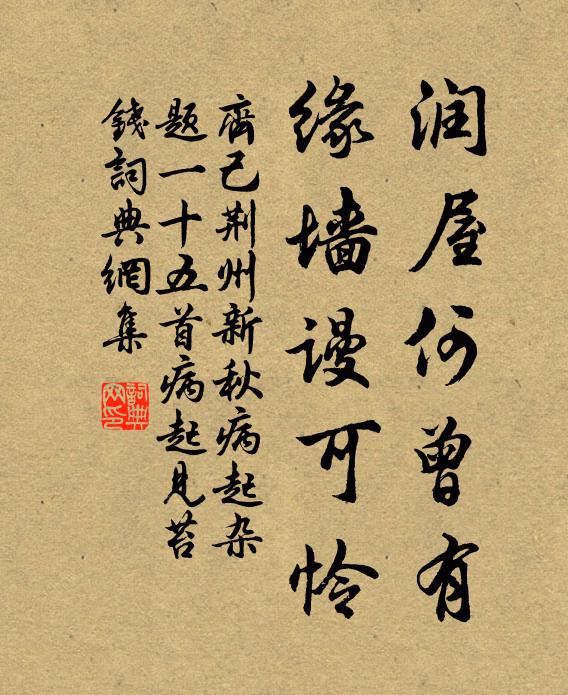 润屋何曾有
缘墙谩可怜
齊己荆州新秋病起杂
题一十五首病起见苔
錢詞典網集
詞典网印